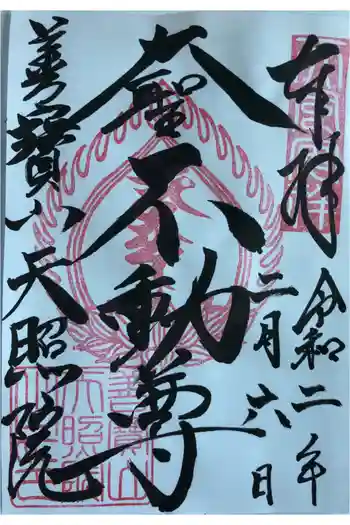 奉拝
令和二年
二月六日
大聖不動尊
善寶山天照院